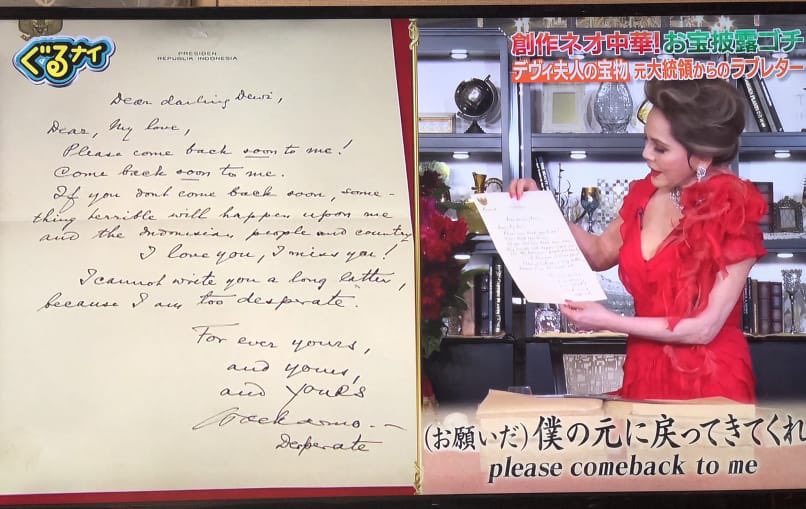 ぐるナイ
PRESIDEN
REPUBLIK INDONESIA
Dear darling Dewi,
Dear, My love,
Please come back soon to me!
Come back soon to me.
If you dont come back soon, some-
thing terrible will happen upon me
and the Indonesian people and country
I love you, I miss you!
I cannot write you a long latter,
because I am too desperate.
For ever yours,
and yours,
and yours
Soekarno
Desperate
創作ネオ中華!お宝披露ゴチ
デヴィ夫人の宝物 元大統領からのラブレター
(お願いだ)僕の元に戻ってきてくれ
please comeback to me